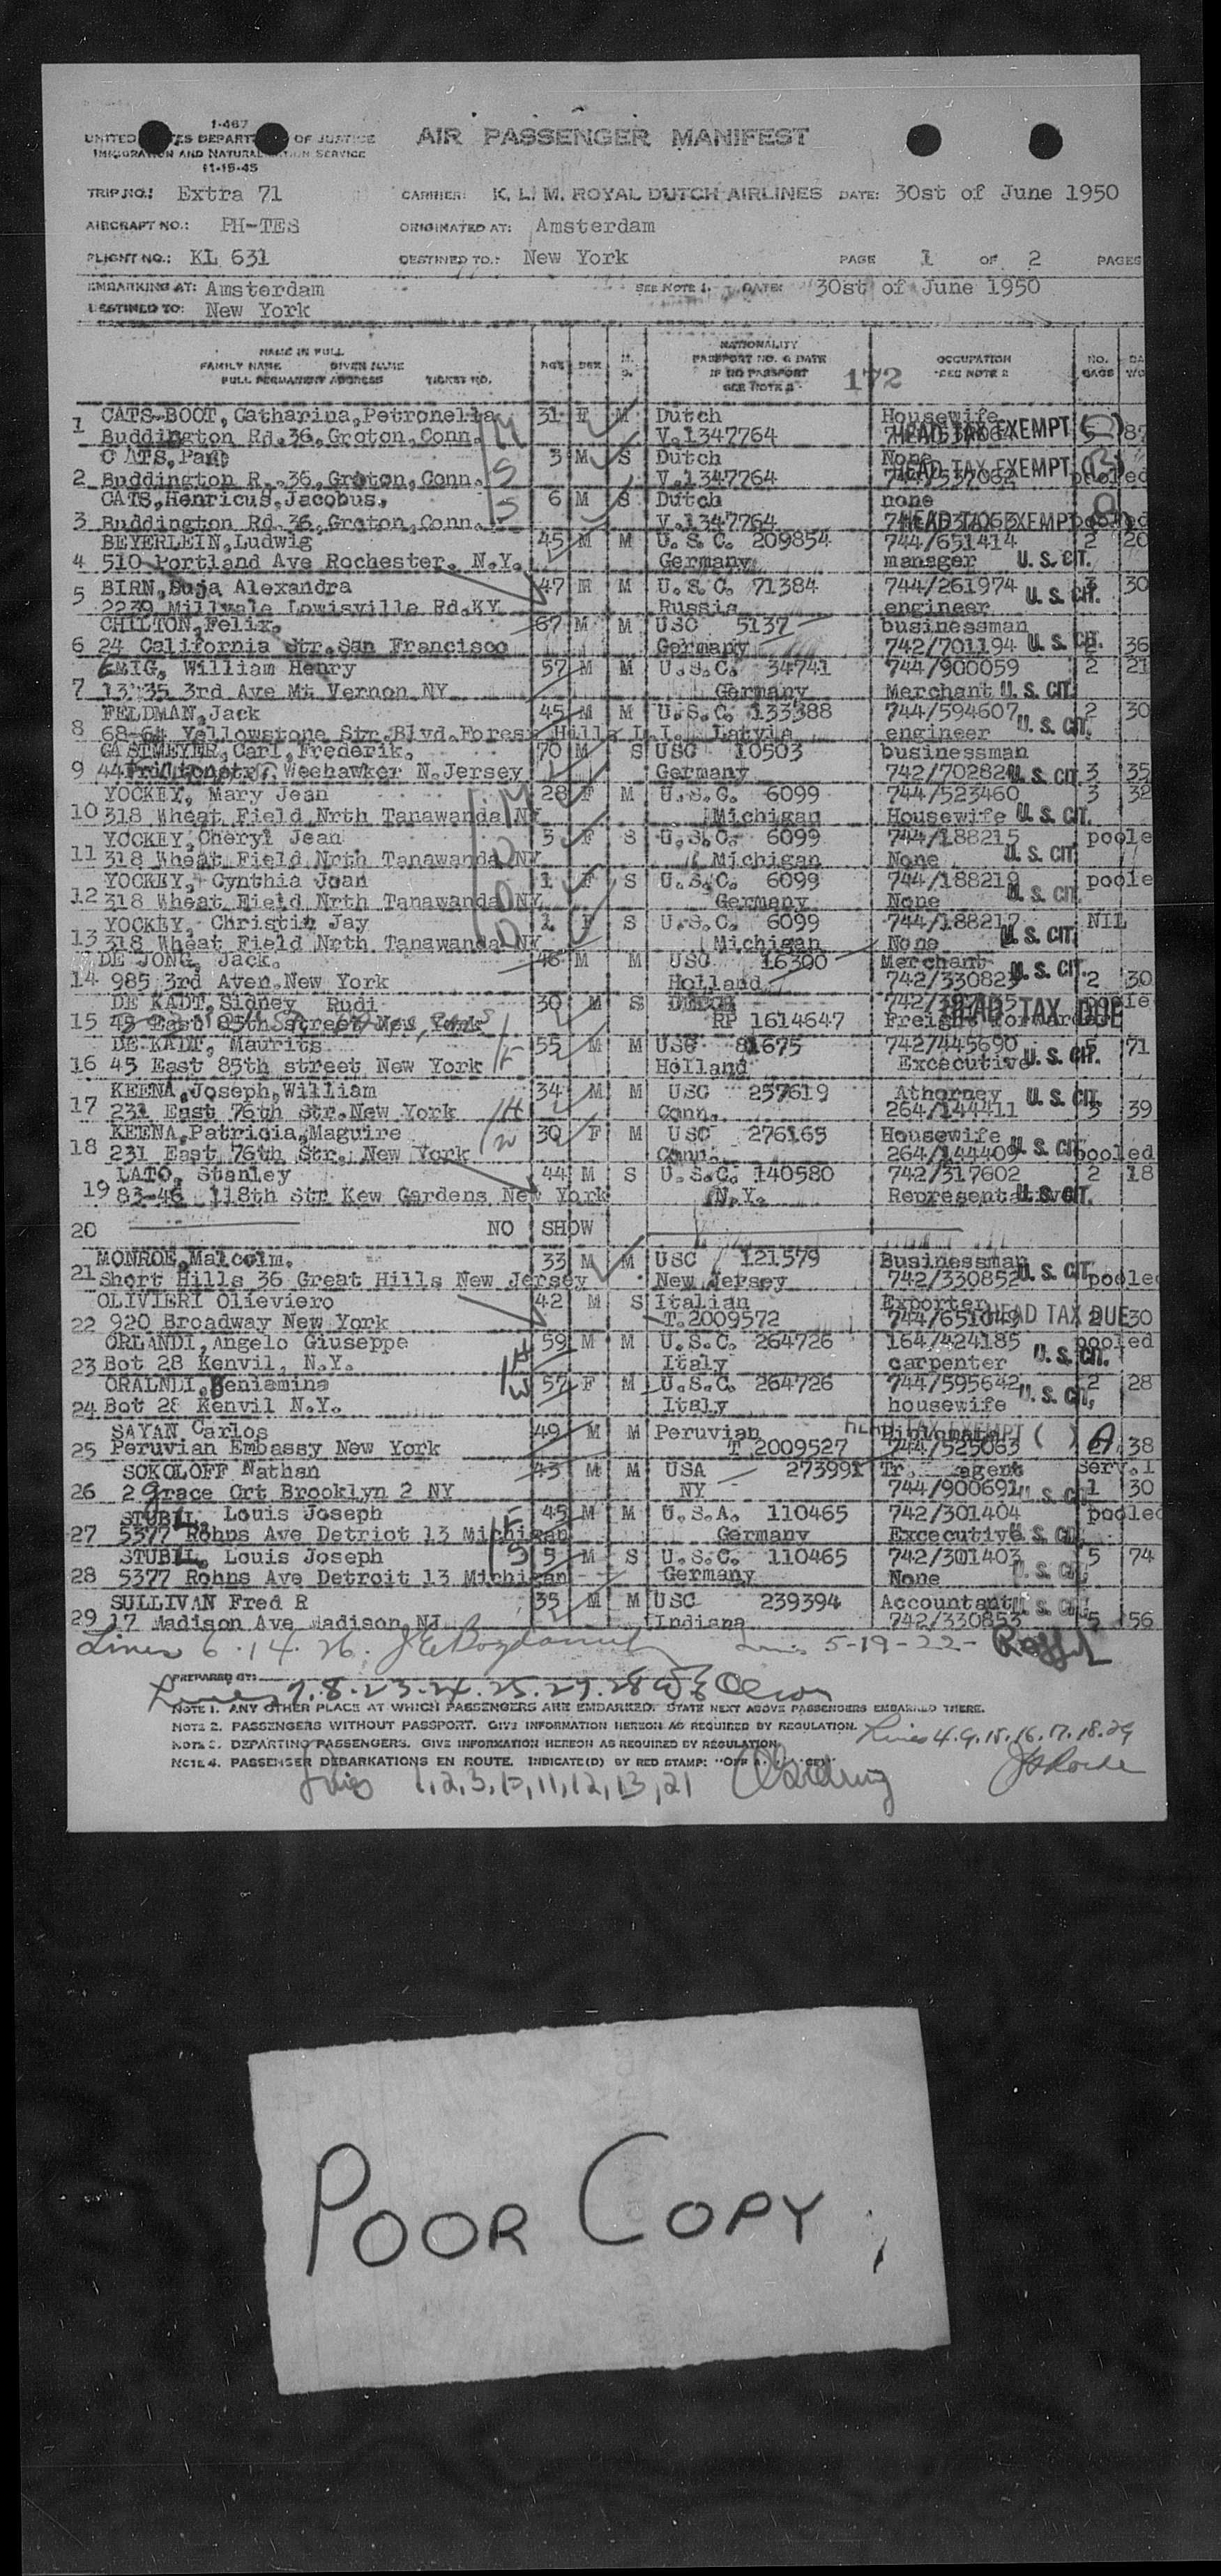 1-467
UNITED STATES DEPARTMENT OF JUSTICE
IMMIGRATION AND NATURALIZATION SERVICE
11-15-45
AIR PASSENGER MANIFEST
TRIP NO.: Extra 71 CARRIER: K. L. M. ROYAL DUTCH AIRLINES DATE: 30st of June 1950
AIRCRAFT NO.: PH-TES ORIGINATED AT: Amsterdam
FLIGHT NO.: KL 631 DESTINED TO.: New York PAGE 1 OF 2 PAGES
EMBARKING AT: Amsterdam SEE NOTE 1. DATE: 30st of June 1950
DESTINED TO: New York
NAME IN FULL
FAMILY NAME GIVEN NAME
FULL PERMANENT ADDRESS TICKET NO.
AGE SEX NATIONALITY
PASSPORT NO. & DATE
IF NO PASSPORT
SEE NOTE 2 172
OCCUPATION
SEE NOTE 2 NO. BAGS
CATS-BOOT, Catharina, Petronella 31 F M Dutch Housewife
1 Buddington Rd. 36, Groton, Conn. M V.1347764 HEAD TAX EXEMPT 87
CATS, 3 M S Dutch None
2 Buddington R. 36, Groton, Conn. S V.1347764 HEAD TAX EXEMPT pooled
CATS, Henricus, Jacobus. 6 M S Dutch none
3 Buddington Rd. 36, Groton, Conn. S V.1347764 HEAD TAX EXEMPT pooled
BEYERLEIN, Ludwig 45 M M U.S.C. 209854 744/651414 2 20
4 510 Portland Ave Rochester. N.Y. Germany manager U. S. CIT.
5 BIRN, Buja Alexandra 47 M M U.S.C. 71384 744/261974 3 30
2239 Millvale Lowisville Rd.KY Russia engineer U. S. CIT.
CHILTON, Felix. 67 M M USC 5137 businessman
6 24 California Str. San Francisco Germany 742/701194 U. S. CIT. 2 36
EMIG, William Henry 57 M M U.S.C. 34741 744/900059 2 21
7 13 35 3rd Ave Mt Vernon NY Germany Merchant U. S. CIT.
FELDMAN, Jack 45 M M U.S.C. 133388 744/594607 2 30
8 68-64 Yellowstone Str. Blvd. Forest Hills L.I. Latvia engineer U. S. CIT.
GASTMEYER, Carl, Frederik. 70 M S USC 10503 businessman
9 44 Weehawker N.Jersey Germany 742/702824 U. S. CIT. 3 35
YOCKEY, Mary Jean 28 F M U.S.C. 6099 744/523460 3 32
10 318 Wheat Field Nrth Tanawanda NY M Michigan Housewife U. S. CIT.
YOCKEY, Cheryl Jean 3 F S U.S.C. 6099 744/188215 poole
11 318 Wheat Field Nrth Tanawanda NY D Michigan None U. S. CIT
YOCKEY, Cynthia Joan 1 F S U.S.C. 6099 744/188219 poole
12 318 Wheat Field Nrth Tanawanda NY D Germany None U. S. CIT.
YOCKEY, Christin Jay 1 F S U.S.C. 6099 744/188217 NIL
13 318 Wheat Field Nrth Tanawanda NY D Michigan None U. S. CIT.
DE JONG, Jack. 46 M M USC 16300 Merchant
14 985 3rd Aven. New York Holland 742/330829 U. S. CIT. 2 30
DE KADT, Sidney Rudi 30 M S poole
15 45 East 85th street New York RP 1614647 HEAD TAX DUE
DE KADT, Maurits 55 M M USC 81675 742/445690 5 71
16 45 East 85th street New York F Holland Excecutive U. S. CIT.
KEENA, Joseph, William 34 M M USC 257619 Athorney U. S. CIT.
17 231 East 76th Str. New York H Conn. 264/144411 3 39
KEENA, Patricia, Maguire 30 F M USC 276165 Housewife
18 231 East 76th Str. New York W Conn. 264/144409 U. S. CIT pooled
LATO, Stanley 44 M S U.S.C. 140580 742/317602 2 18
19 83-46 118th Str Kew Gardens New York N.Y. Representative U. S. CIT.
20 NO SHOW
MONROE, Malcolm. 33 M M USC 121579 Businessman
21 Short Hills 36 Great Hills New Jersey New Jersey 742/330852 U. S. CIT. pooled
OLIVIERI Olieviero 42 M S Italian Exporter
22 920 Broadway New York T.2009572 744/651049 HEAD TAX DUE 2 30
ORLANDI, Angelo Giuseppe 59 M M U.S.C. 264726 164/424185 pooled
23 Bot 28 Kenvil, N.Y. H Italy carpenter U. S. CIT.
ORALNDI, Beniamina 57 F M U.S.C. 264726 744/595642 2 28
24 Bot 28 Kenvil N.Y. W Italy housewife U. S. CIT,
SAYAN Carlos 49 M M Peruvian Diplomate
25 Peruvian Embassy New York T 2009527 744/525063 HEAD TAX EXEMPT ( ) A 38
SOKOLOFF Nathan 43 M M USA 273991 Tr. agent
26 2 Grace Ort Brooklyn 2 NY NY 744/900691 U. S. CIT 1 30
STUBLL, Louis Joseph 45 M M U.S.A. 110465 742/301404 pooled
27 5377 Rohns Ave Detriot 13 Michigan F Germany Excecutive U. S. CIT
STUBLL, Louis Joseph 5 M S U.S.C. 110465 742/301403 5 74
28 5377 Rohns Ave Detroit 13 Michigan S Germany None U. S. CIT
SULLIVAN Fred R 35 M M USC 239394 Accountant U. S. CIT
29 17 Madison Ave Madison NJ Indiana 742/330853 5 56
Lines 6.14.26. Lines 5-19-22-
PREPARED BY:
Lines 7.8.23.24.25.27.28 Olson
NOTE 1. ANY OTHER PLACE AT WHICH PASSENGERS ARE EMBARKED. STATE NEXT ABOVE PASSENGERS EMBARKED THERE.
NOTE 2. PASSENGERS WITHOUT PASSPORT. GIVE INFORMATION HEREON AS REQUIRED BY REGULATION.
NOTE 3. DEPARTING PASSENGERS. GIVE INFORMATION HEREON AS REQUIRED BY REGULATION.
Lines 4.9.15.16.17.18.29
NOTE 4. PASSENGER DEBARKATIONS EN ROUTE. INDICATE(D) BY RED STAMP:
Lines 1,2,3,10,11,12,13,21
POOR COPY